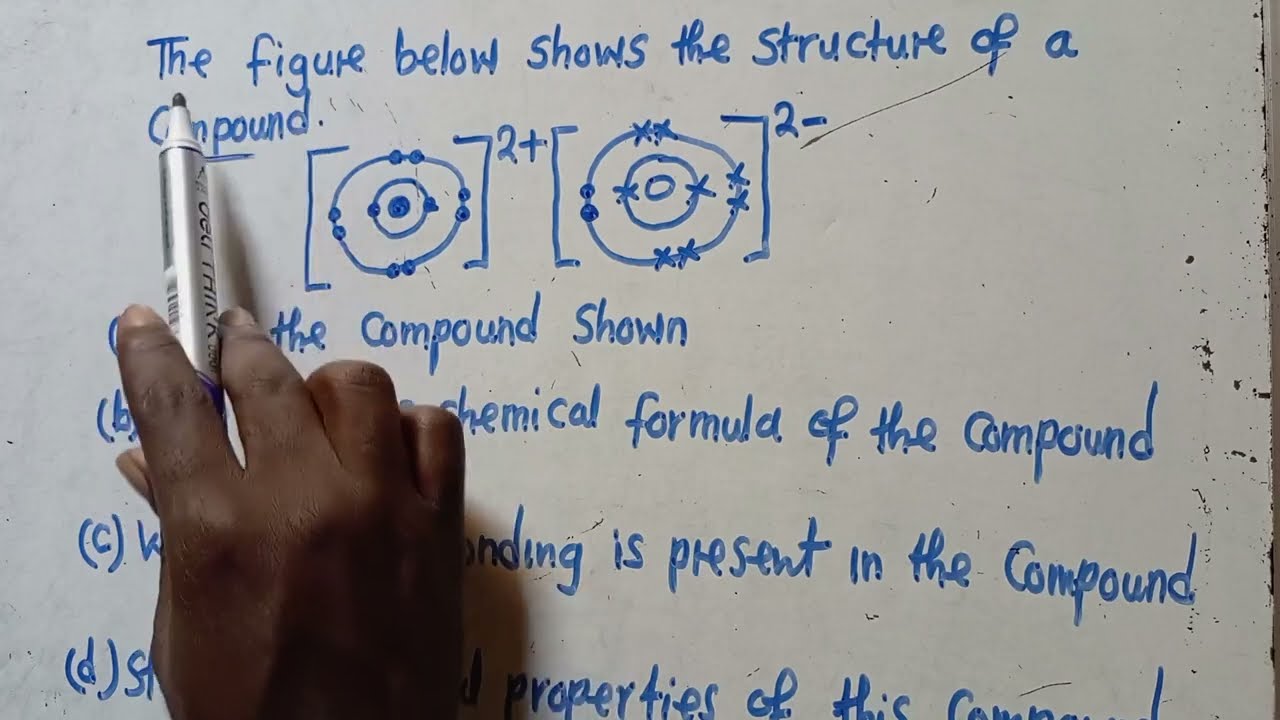 The figure below shows the structure of a
Compound.
2+ 2-
the Compound Shown
(b) chemical formula of the Compound
(c) onding is present in the Compound
(d) properties of this Compound
deli THINK